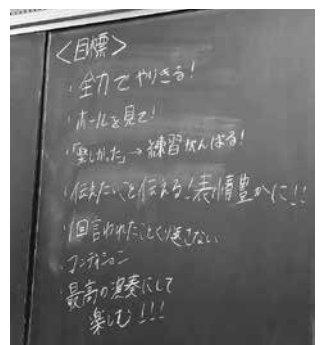 <目標>
・全力でやりきる!
・ホールを見て!
・「楽しかった」→練習がんばる!
・伝えたいこと伝える!表情豊かに!!
・1回言われたことくり返さない
・コンディション
・最高の演奏にして
楽しむ!!!